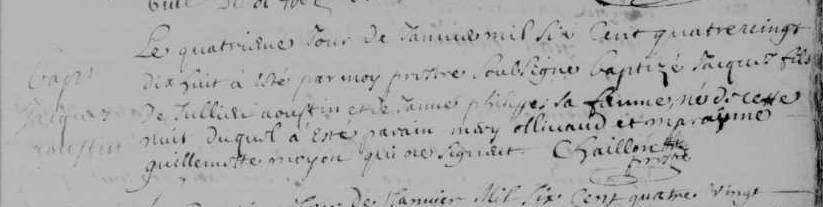 Le quatrieme Jour de Janvie mil six Cent quatreveingt
Bapt dix huit à esté par moy prestre soubsigné baptizé Jacques fils
Jacques de Jullien aoustin et de Janne philippe sa femme, né de cette
aoustin nuit duquel à esté parain mary ollivaud et maraynne
guillemette moyon qui ne signent Chaillou prestre
Jour de Janvier Mil six Cent quatre vingt